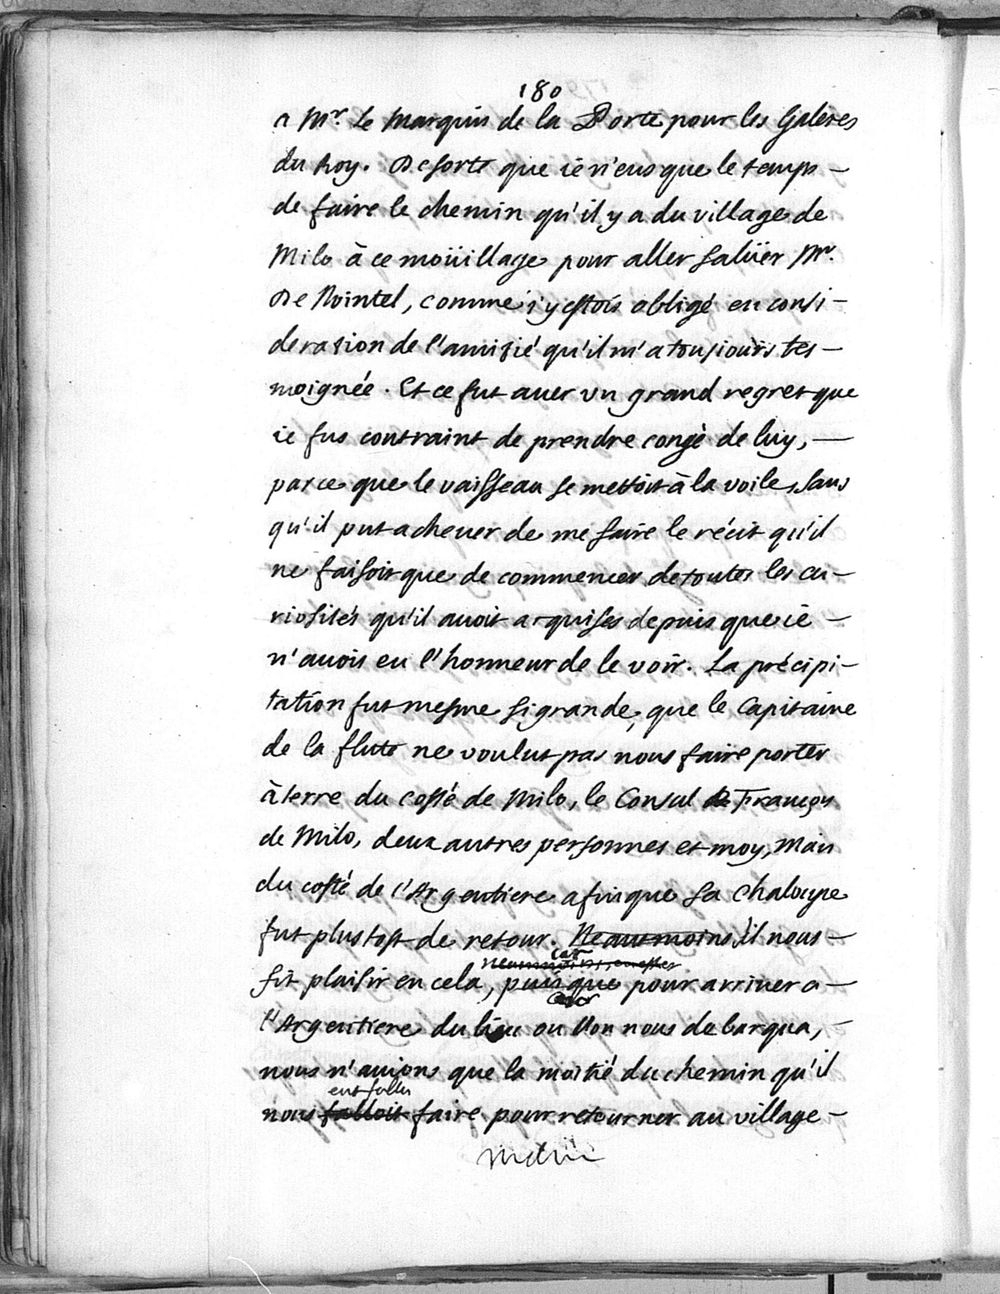 180
a Mr. Le Marquis de la Porte pour les Galeres
du Roy. De sorte que ie n'eus que le temps –
de faire le chemin qu'il y a du village de
Milo à ce moüillage pour aller salüer Mr.
De Nointel, comme i'y estois obligé en consi-
deration de l'amitié qu'il m'a tousiours tes-
moignée. Et ce fut auec un grand regret que
ie fus contraint de prendre congé de luy, –
parce que le vaisseau se mettoit à la voile, sans
qu'il put acheuer de me faire le récit qu'il
ne faisoit que de commencer de toutes les cu-
riosités qu'il auoit acquises depuis que ie –
n'auois eu l'honneur de le voir. La précipi-
tation fut mesme si grande, que le Capitaine
de la flute ne voulut pas nous faire porter
à terre du costé de Milo, le Consul de François
de Milo, deux autres personnes et moy, mais
du costé de l'Argentiere afin que sa chaloupe
fut plustost de retour. Neantmoins, il nous –
car
neantmoins, en effet
fit plaisir en cela, puis que pour arriuer a –
car
l'Argentiere du lieu ou l'on nous debarqua, –
nous n'auions que la moitié du chemin qu'il
eut fallu
nous falloit faire pour retourner au village –